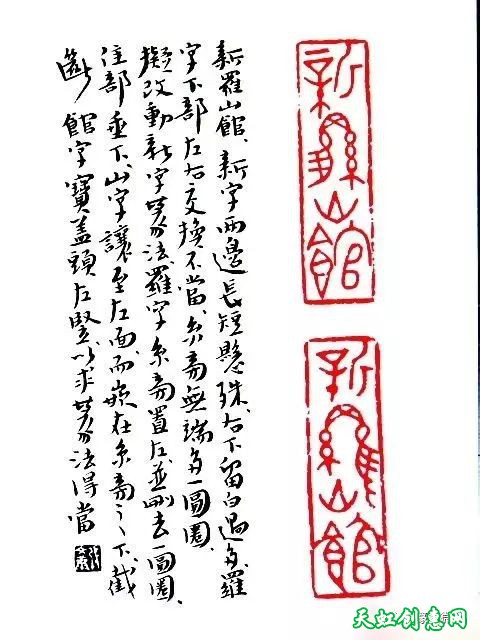 新羅山館、新字兩邊長短懸殊、右下留白過多、羅
字下部左右交換不當、糸旁無端多一圓圈、
擬改動新字篆法、羅字糸旁置左、並刪去一圓圈、
隹部垂下、山字讓至左面、而嵌在糸旁之下、截
斷館字寶蓋頭左豎、以求篆法得當
新羅山館
新羅山館
天虹创意网